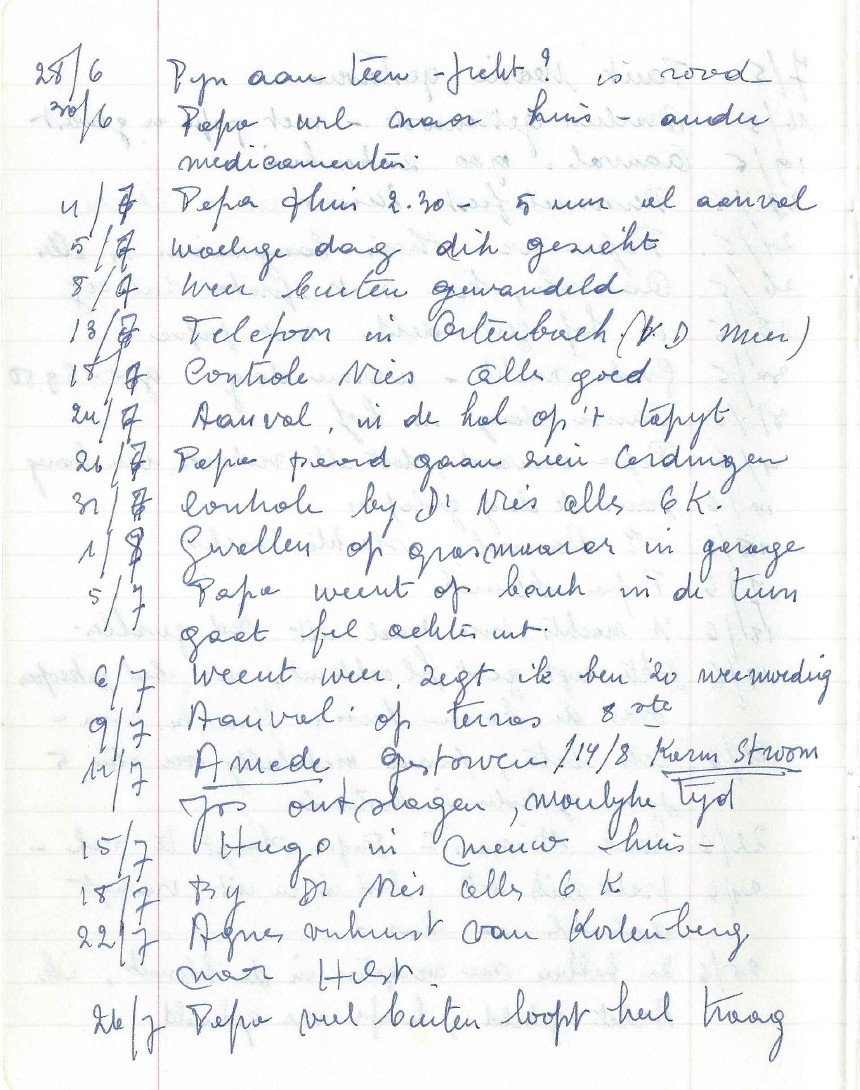 28/6 Pyn aan teen - Jicht? is rood -
30/6 Papa wil naar huis - ander
medicamenten.
4/7 Papa thuis 2.30 - 5 uur al aanval
5/7 woelige dag dik gezicht
8/7 Weer buiten gewandeld
13/7 Telefoon in Ortenbach (V.D Meer)
18/7 Controle Nies alles goed
24/7 Aanval, in de hal op 't tapyt
26/7 Papa paard gaan zien Cordingen
31/7 Controle by Dr Nies alles O K.
1/8 Gevallen op grasmaaier in garage
5/7 Papa weent op bank in de tuin
gaat fel achteruit.
6/7 Weent weer, zegt ik ben zo weemoedig
9/7 Aanval op terras 8ste
12/7 Amede gestorven /14/8 Karin Stroom
Jos ontslagen, moeilyke tyd
15/7 Hugo in nieuw huis -
18/7 By Dr Nies alles O K
22/7 Agnes verhuist van Kortenberg
naar Helst.
26/7 Papa viel buiten loopt heel traag